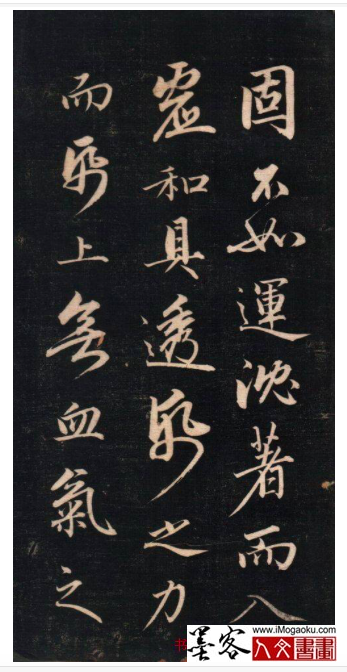 固不如運沈著而入
虛和具透帋之力
而帋上無血氣之
墨客
www.iMogaoku.com
人文書畫